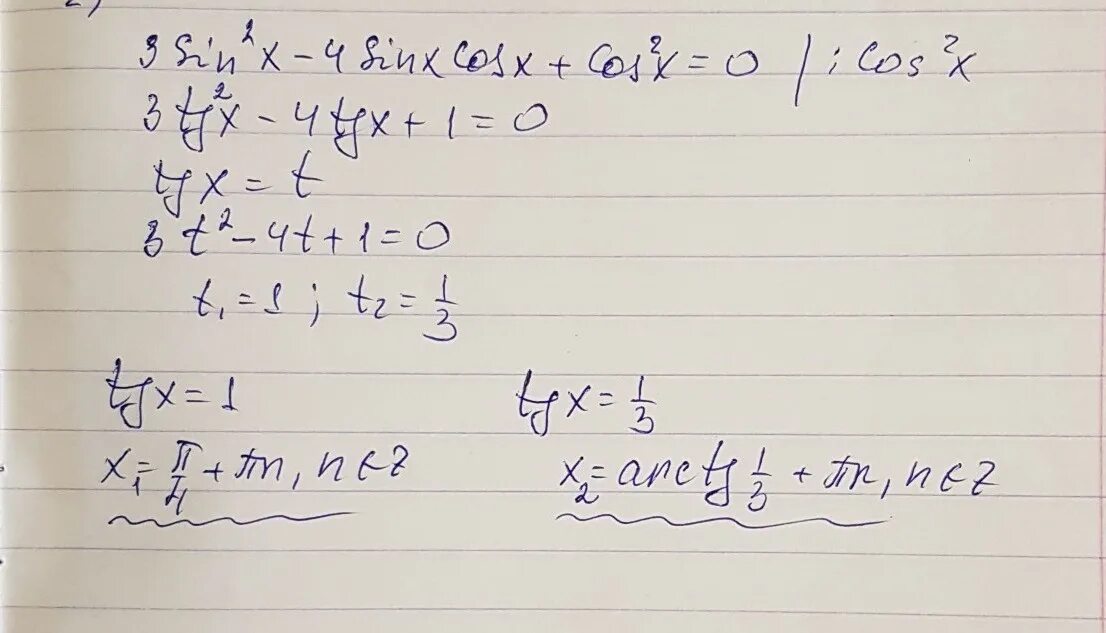 2)
3 sin²x - 4 sinx cosx + cos²x = 0 | : cos²x
3 tg²x - 4 tgx + 1 = 0
tg x = t
3 t² - 4t + 1 = 0
t₁ = 1 ; t₂ = 1/3
tg x = 1 tg x = 1/3
x₁ = π/4 + πn, n ∈ Z x₂ = arctg 1/3 + πn, n ∈ Z